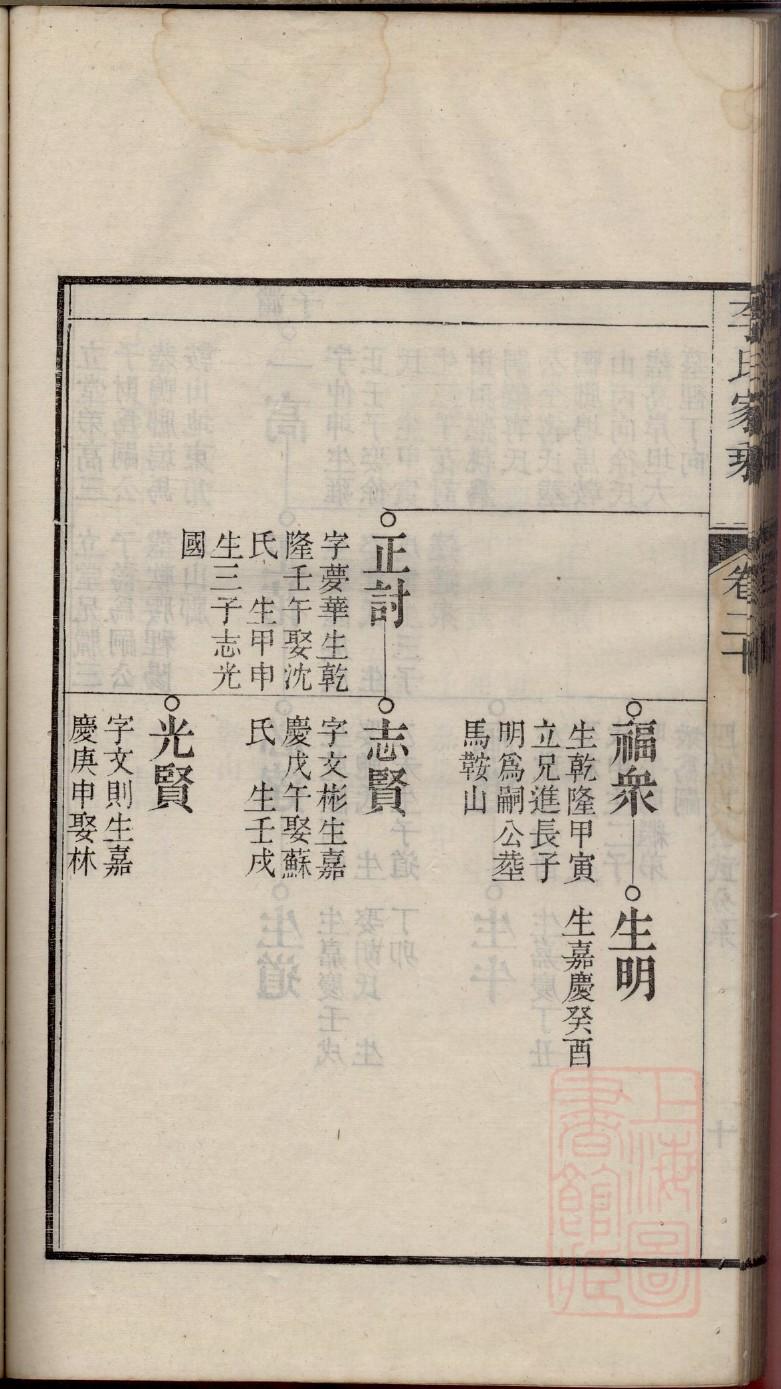 李氏家乘
卷二十
福衆
生乾隆甲寅
立兄進長子
明爲嗣公塟
馬鞍山
生明
生嘉慶癸酉
正討
字夢華生乾
隆壬午娶沈
氏 生甲申
生三子志光
國
志賢
字文彬生嘉
慶戊午娶蘇
氏 生壬戌
光賢
字文則生嘉
慶庚申娶林
上海圖
書館藏